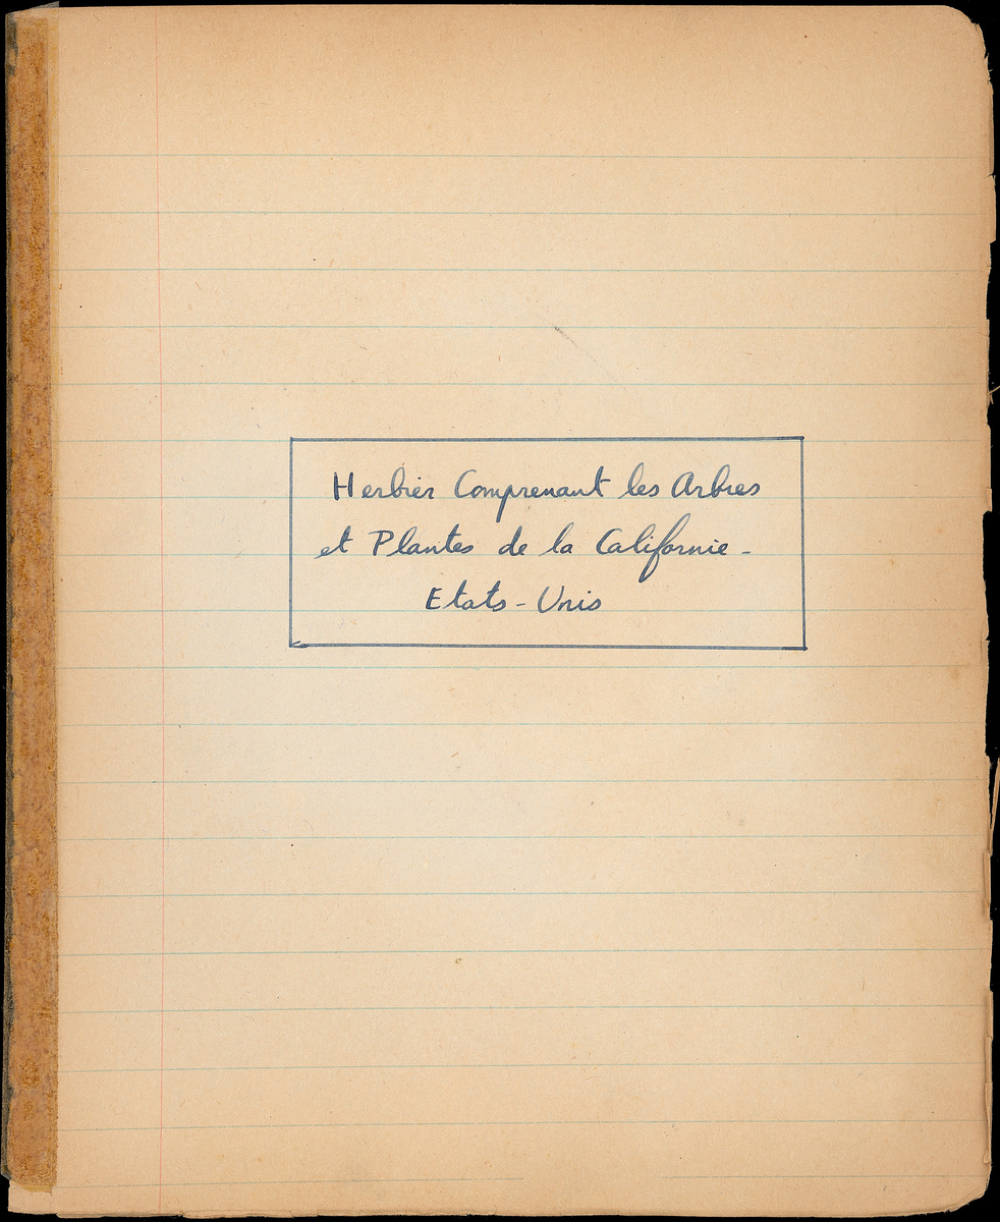 Herbier Comprenant les Arbres
et Plantes de la Californie -
Etats - Unis